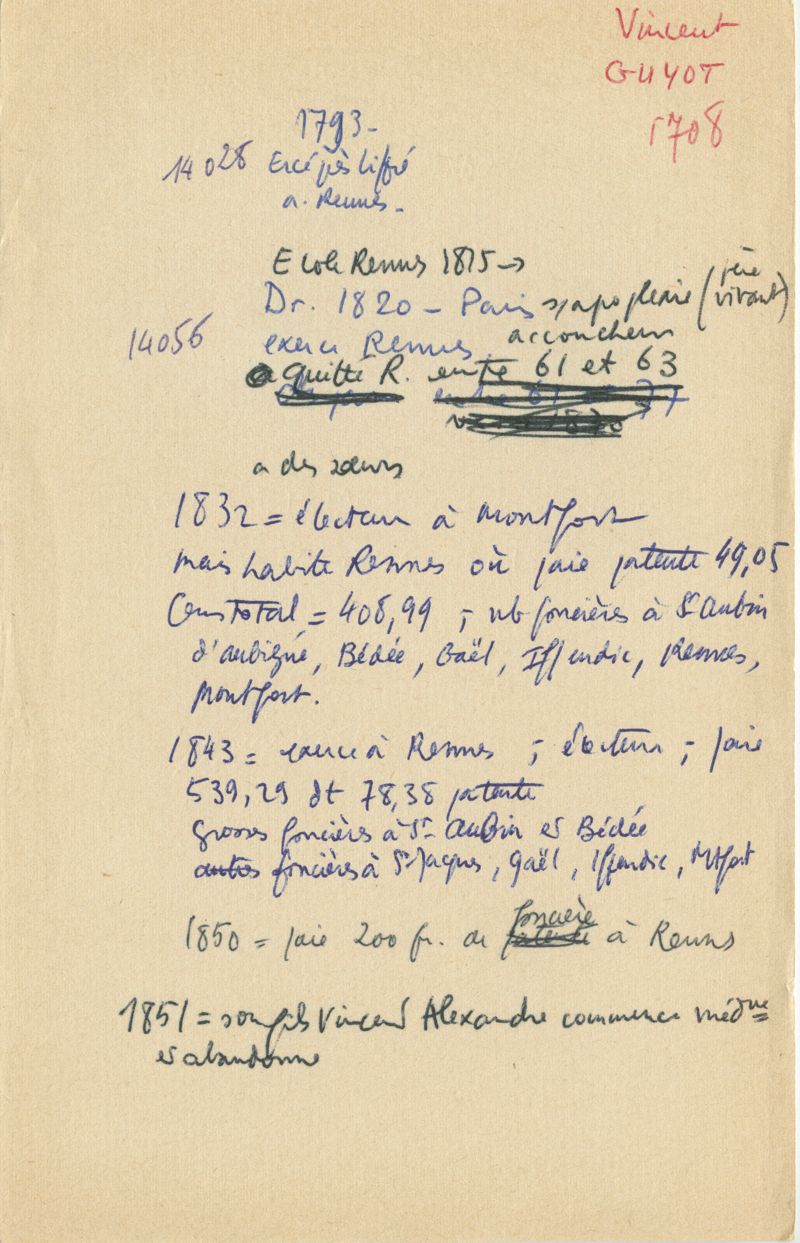 Vincent
GUYOT
1708
1793-
14028 Ercé près Liffré
a. Rennes.
Ecole Rennes 1815 →
Dr. 1820 - Paris s/apoplexie (père vivant)
14056 exerce Rennes. accoucheur
a quitté R. entre 61 et 63
entre 61 et 77
1870
a des sœurs
1832 = électeur à Montfort
mais habite Rennes où paie patente 49,05
Cens total = 408,99 ; nb foncières à St Aubin
d'aubigné, Bédée, Gaël, Iffendic, Rennes,
Montfort.
1843 = exerce à Rennes ; électeur ; paie
539,29 dt 78,38 patente
Grosses foncières à St Aubin et Bédée
autres foncières à St Jacques, Gaël, Iffendic, Mtfort
1850 = paie 200 fr. de patente foncière à Rennes
1851 = son fils Vincent Alexandre commence médne
et abandonne